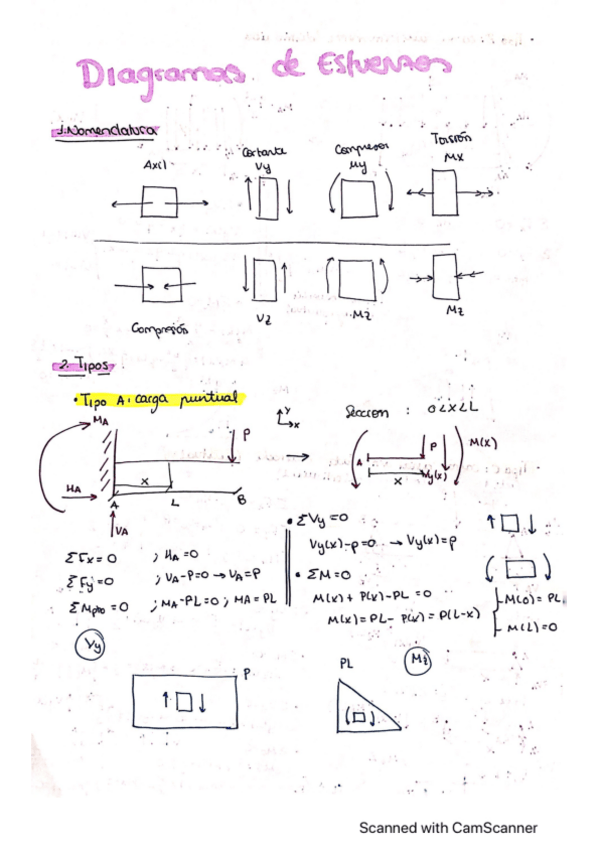 Diagramas de Esfuerzos
1. Nomenclatura
Axil
Cortante
Vy
Compresor
My
Torsión
Mx
Compresión
Vz
Mz
Mz
2. Tipos
• Tipo A: carga puntual
MA
P
x
HA
A
L
B
VA
y
x
Seccion : 0<x<L
A
P
M(x)
x
Vy(x)
ΣFx = 0 ; HA = 0
ΣFy = 0 ; VA - P = 0 → VA = P
; MA - PL = 0 ; MA = PL
• ΣVy = 0
Vy(x) - P = 0 → Vy(x) = P
• ΣM = 0
M(x) + P(x) - PL = 0
M(x) = PL - P(x) = P(L-x)
M(0) = PL
M(L) = 0
Vy
P
PL
Mz
Scanned with CamScanner